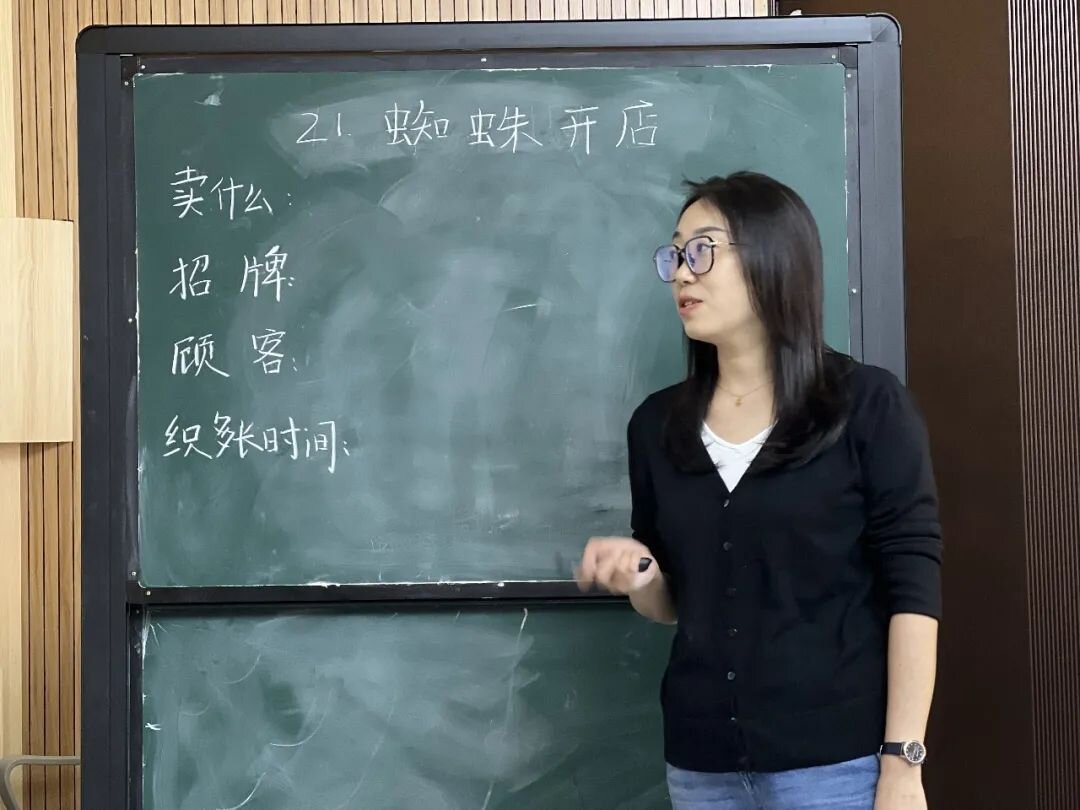 21. 蜘蛛开店
卖什么:
招牌:
顾客:
织多长时间: